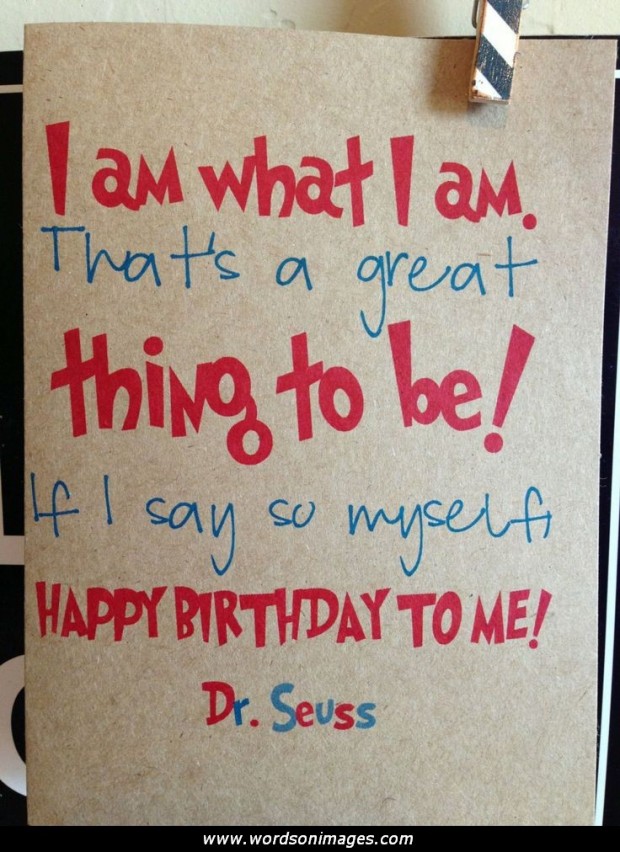 I am what I am.
That's a great
thing to be!
If I say so myself,
HAPPY BIRTHDAY TO ME!
Dr. Seuss
www.wordsonimages.com